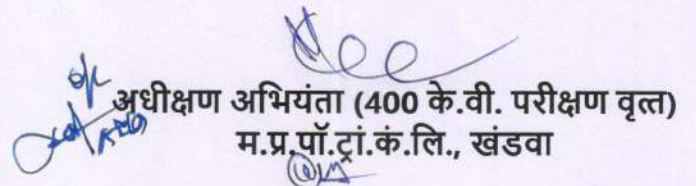 अधीक्षण अभियंता (400 के.वी. परीक्षण वृत्त)
म.प्र.पॉ.ट्रां.कं.लि., खंडवा